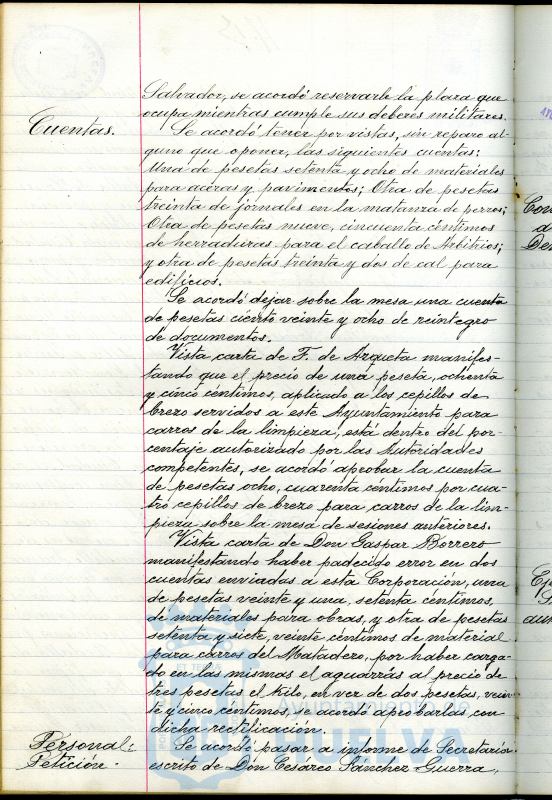 Salvador, se acordó reservarle la plaza que
ocupa mientras cumple sus deberes militares.
Cuentas.
Se acordó tener por vistas, sin reparo al-
guno que oponer, las siguientes cuentas:
Una de pesetas setenta y ocho de materiales
para aceras y pavimentos; Otra de pesetas
treinta de jornales en la matanza de perros;
Otra de pesetas nueve, cincuenta céntimos
de herraduras para el caballo de Arbitrios;
y otra de pesetas treinta y dos de cal para
edificios.
Se acordó dejar sobre la mesa una cuenta
de pesetas ciento veinte y ocho de reintegro
de documentos.
Vista carta de F. de Azqueta manifes-
tando que el precio de una peseta, ochenta
y cinco céntimos, aplicado a los cepillos de
brezo servidos a este Ayuntamiento para
carros de la limpieza, está dentro del por-
centaje autorizado por las Autoridades
competentes, se acordó aprobar la cuenta
de pesetas ocho, cuarenta céntimos por cua-
tro cepillos de brezo para carros de la lim-
pieza sobre la mesa de sesiones anteriores.
Vista carta de Don Gaspar Borrero
manifestando haber padecido error en dos
cuentas enviadas a esta Corporación, una
de pesetas veinte y una, setenta céntimos,
de materiales para obras, y otra de pesetas
setenta y siete, veinte céntimos de material
para carros del Matadero, por haber carga-
do en las mismas el aguarrás al precio de
tres pesetas el kilo, en vez de dos pesetas, vein-
te y cinco céntimos, se acordó aprobarlas con
dicha rectificación.
Personal:
Petición.
Se acordó pasar a informe de Secretaría
escrito de Don Cesareo Sánchez-Guerra,
Ayuntamiento de
HUELVA